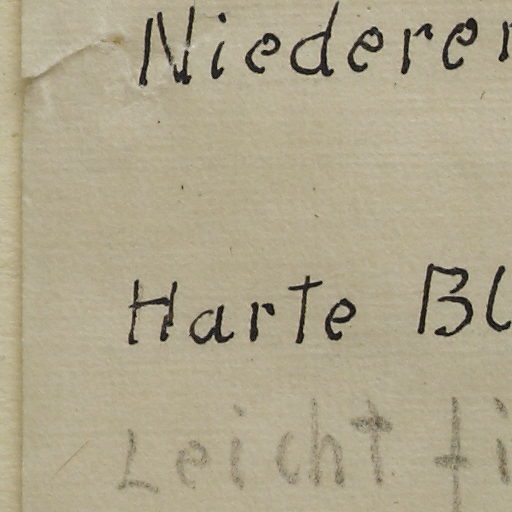 Niederer
Harte Bl
Leicht fi